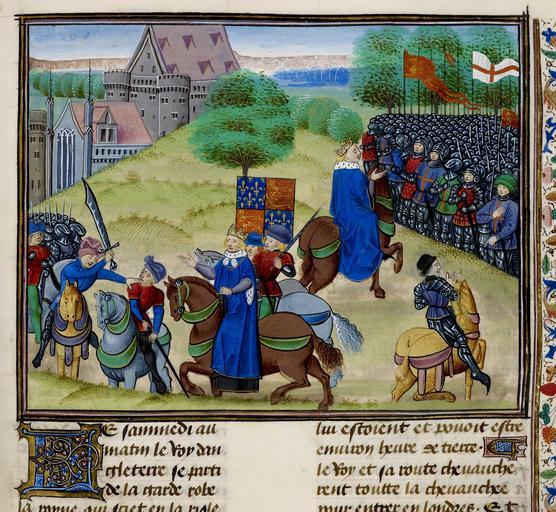 Le sammedi au
matin le Roy dan
gleterre se parti
de la garde robe
la royne qui siet en la riole
lui estoient et pouoit estre
environ heure de tierce
le Roy et sa route chevauche
rent toutte la chevauche
pour entrer en londres. Et